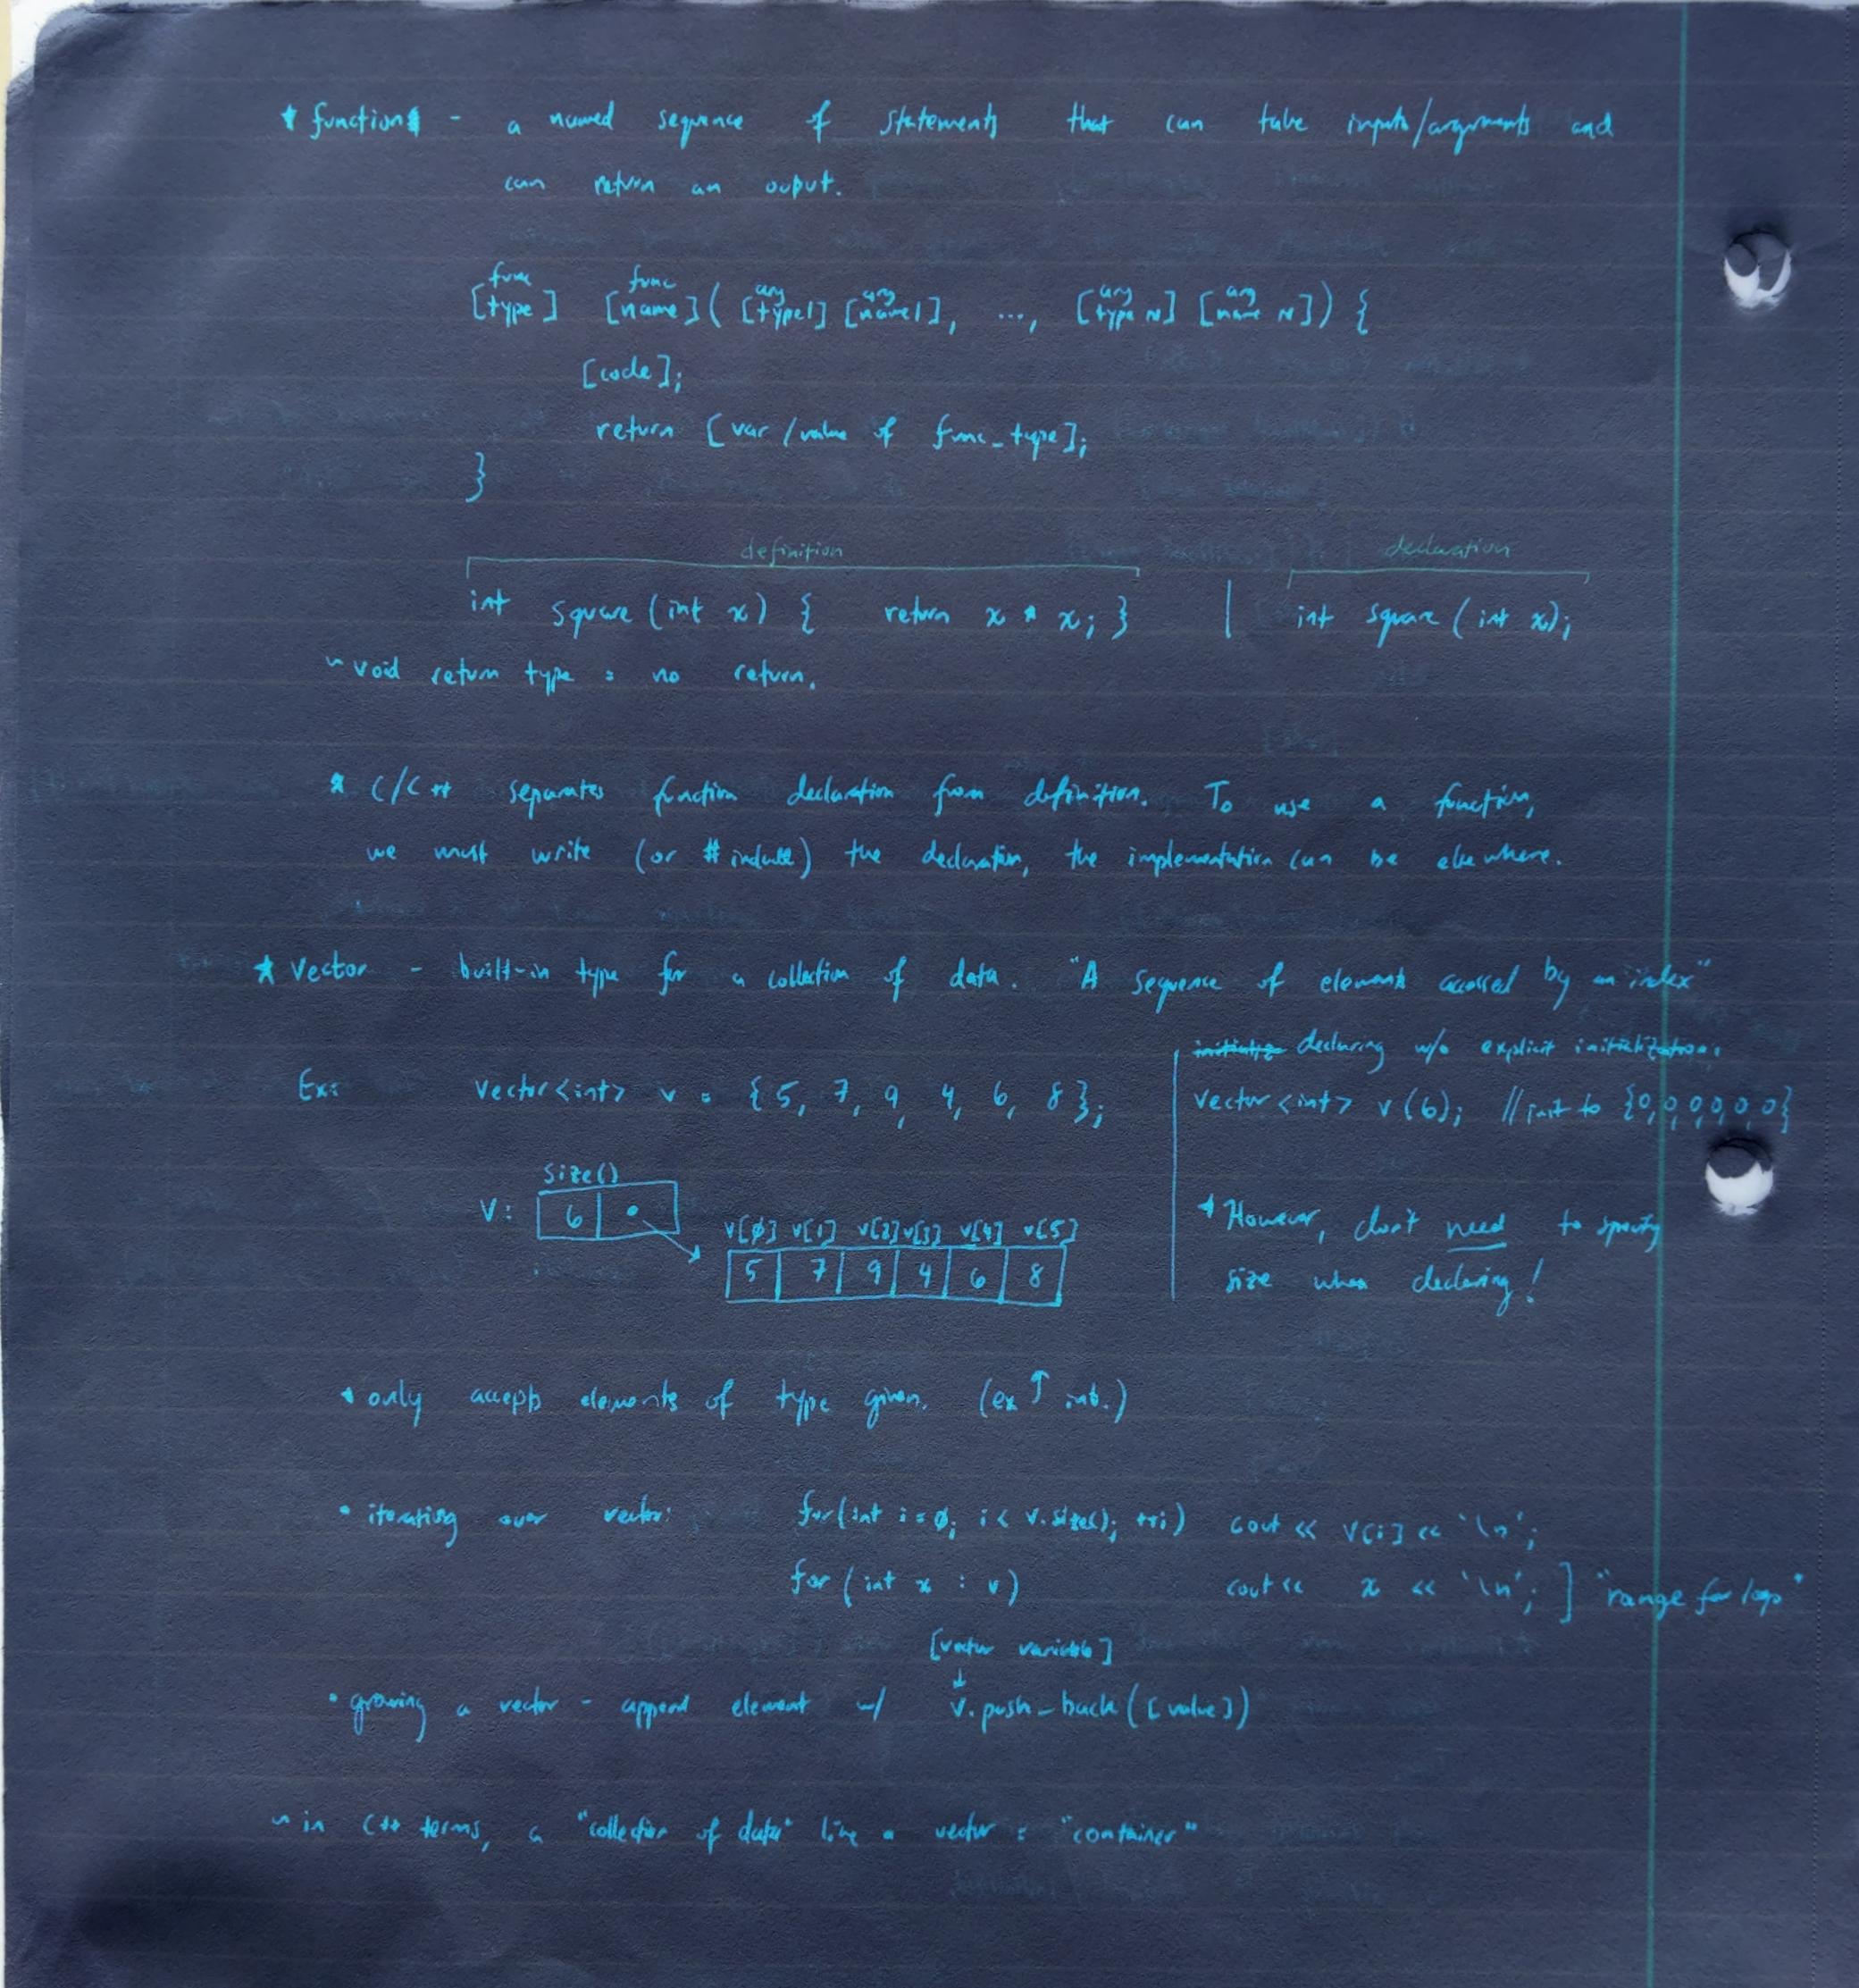 ★ function - a named sequence of statements that can take inputs/arguments and
can return an ouput.
[func type] [func name] ( [arg type1] [arg name1], ..., [arg type N] [arg name N]) {
[code];
return [var/value of func_type];
}
definition
declaration
int square (int x) { return x * x; } | int square (int x);
~ void return type = no return.
* C/C++ separates function declaration from definition. To use a function,
we must write (or #include) the declaration, the implementation can be elsewhere.
★ Vector - built-in type for a collection of data. "A sequence of elements accessed by an index"
initialize declaring w/o explicit initialization:
Ex: vector<int> v = {5, 7, 9, 4, 6, 8};
vector<int> v(6); //init to {0,0,0,0,0,0}
size()
V: 6
v[0] v[1] v[2] v[3] v[4] v[5]
5 7 9 4 6 8
* However, don't need to specify
size when declaring!
* only accepts elements of type given. (ex ↑ int.)
• iterating over vector: for(int i=0; i < v.size(); ++i) cout << v[i] << '\n';
for (int x : v) cout << x << '\n'; ] "range for loop"
[vector variable]
↓
• growing a vector - append element w/ v.push_back([value])
~ in C++ terms, a "collection of data" like a vector = "container"